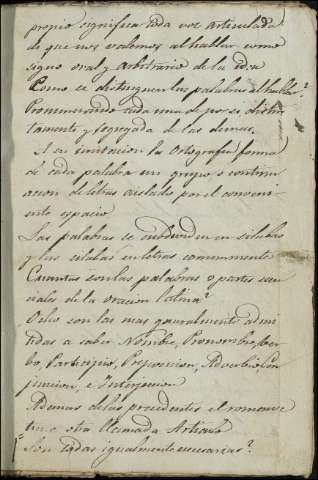 propio significa toda voz articulada
de que nos valemos al hablar como
signo oral y arbitrario de la idea
Como se distinguen las palabras al hablar?
Pronunciando cada una de por si distin
tamente y segregada de las demas.
A su imitacion la Ortografia forma
de cada palabra un grupo o continu
acion de letras aislado por el conveni
ente espacio
Las palabras se subdividen en silabas
y las silabas en letras comunmente
Cuantas son las palabras o partes esen
ciales de la oracion latina?
Ocho son las mas generalmente admi
tidas a saber Nombre, Pronombre, Ver
bo, Participio, Preposicion, Adverbio, Con
juncion, e Interjecion
Ademas de las precedentes el romance
tiene otra llamada Articulo
Son todas igualmente necesarias?